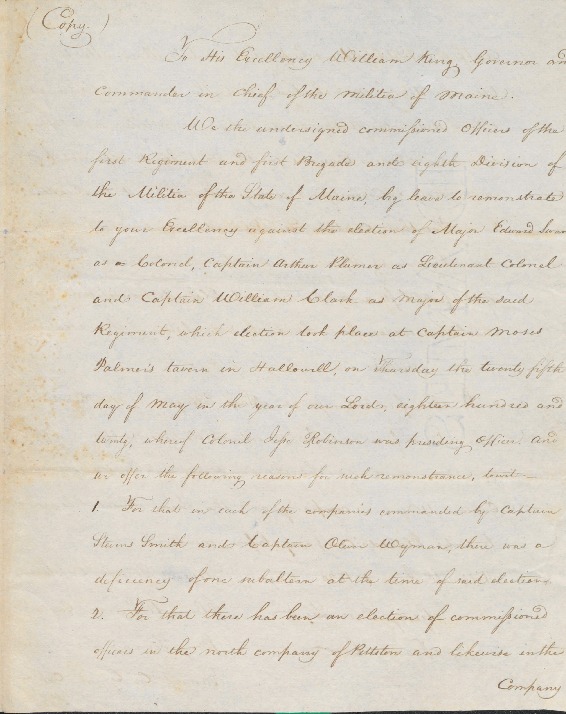 (Copy.)
To His Excellency William King, Governor and
Commander in Chief of the Militia of Maine.
We the undersigned commissioned Officers of the
first Regiment and first Brigade and eighth Division of
the Militia of the State of Maine, beg leave to remonstrate
to your Excellency against the election of Major Edward Swan
as a Colonel, Captain Arthur Plumer as Lieutenant Colonel
and Captain William Clark as Major of the said
Regiment, which election took place at Captain Moses
Palmer's tavern in Hallowell, on Thursday the twenty fifth
day of May in the year of our Lord, eighteen hundred and
twenty, whereof Colonel Jesse Robinson was presiding Officer And
we offer the following reasons for such remonstrance, towit—
1. For that in each of the companies commanded by Captain
Stevens Smith and Captain Wyman, there was a
deficiency of one subaltern at the time of said election
2. For that there has been an election of commissioned
officers in the north company of Pittston and likewise in the
Company